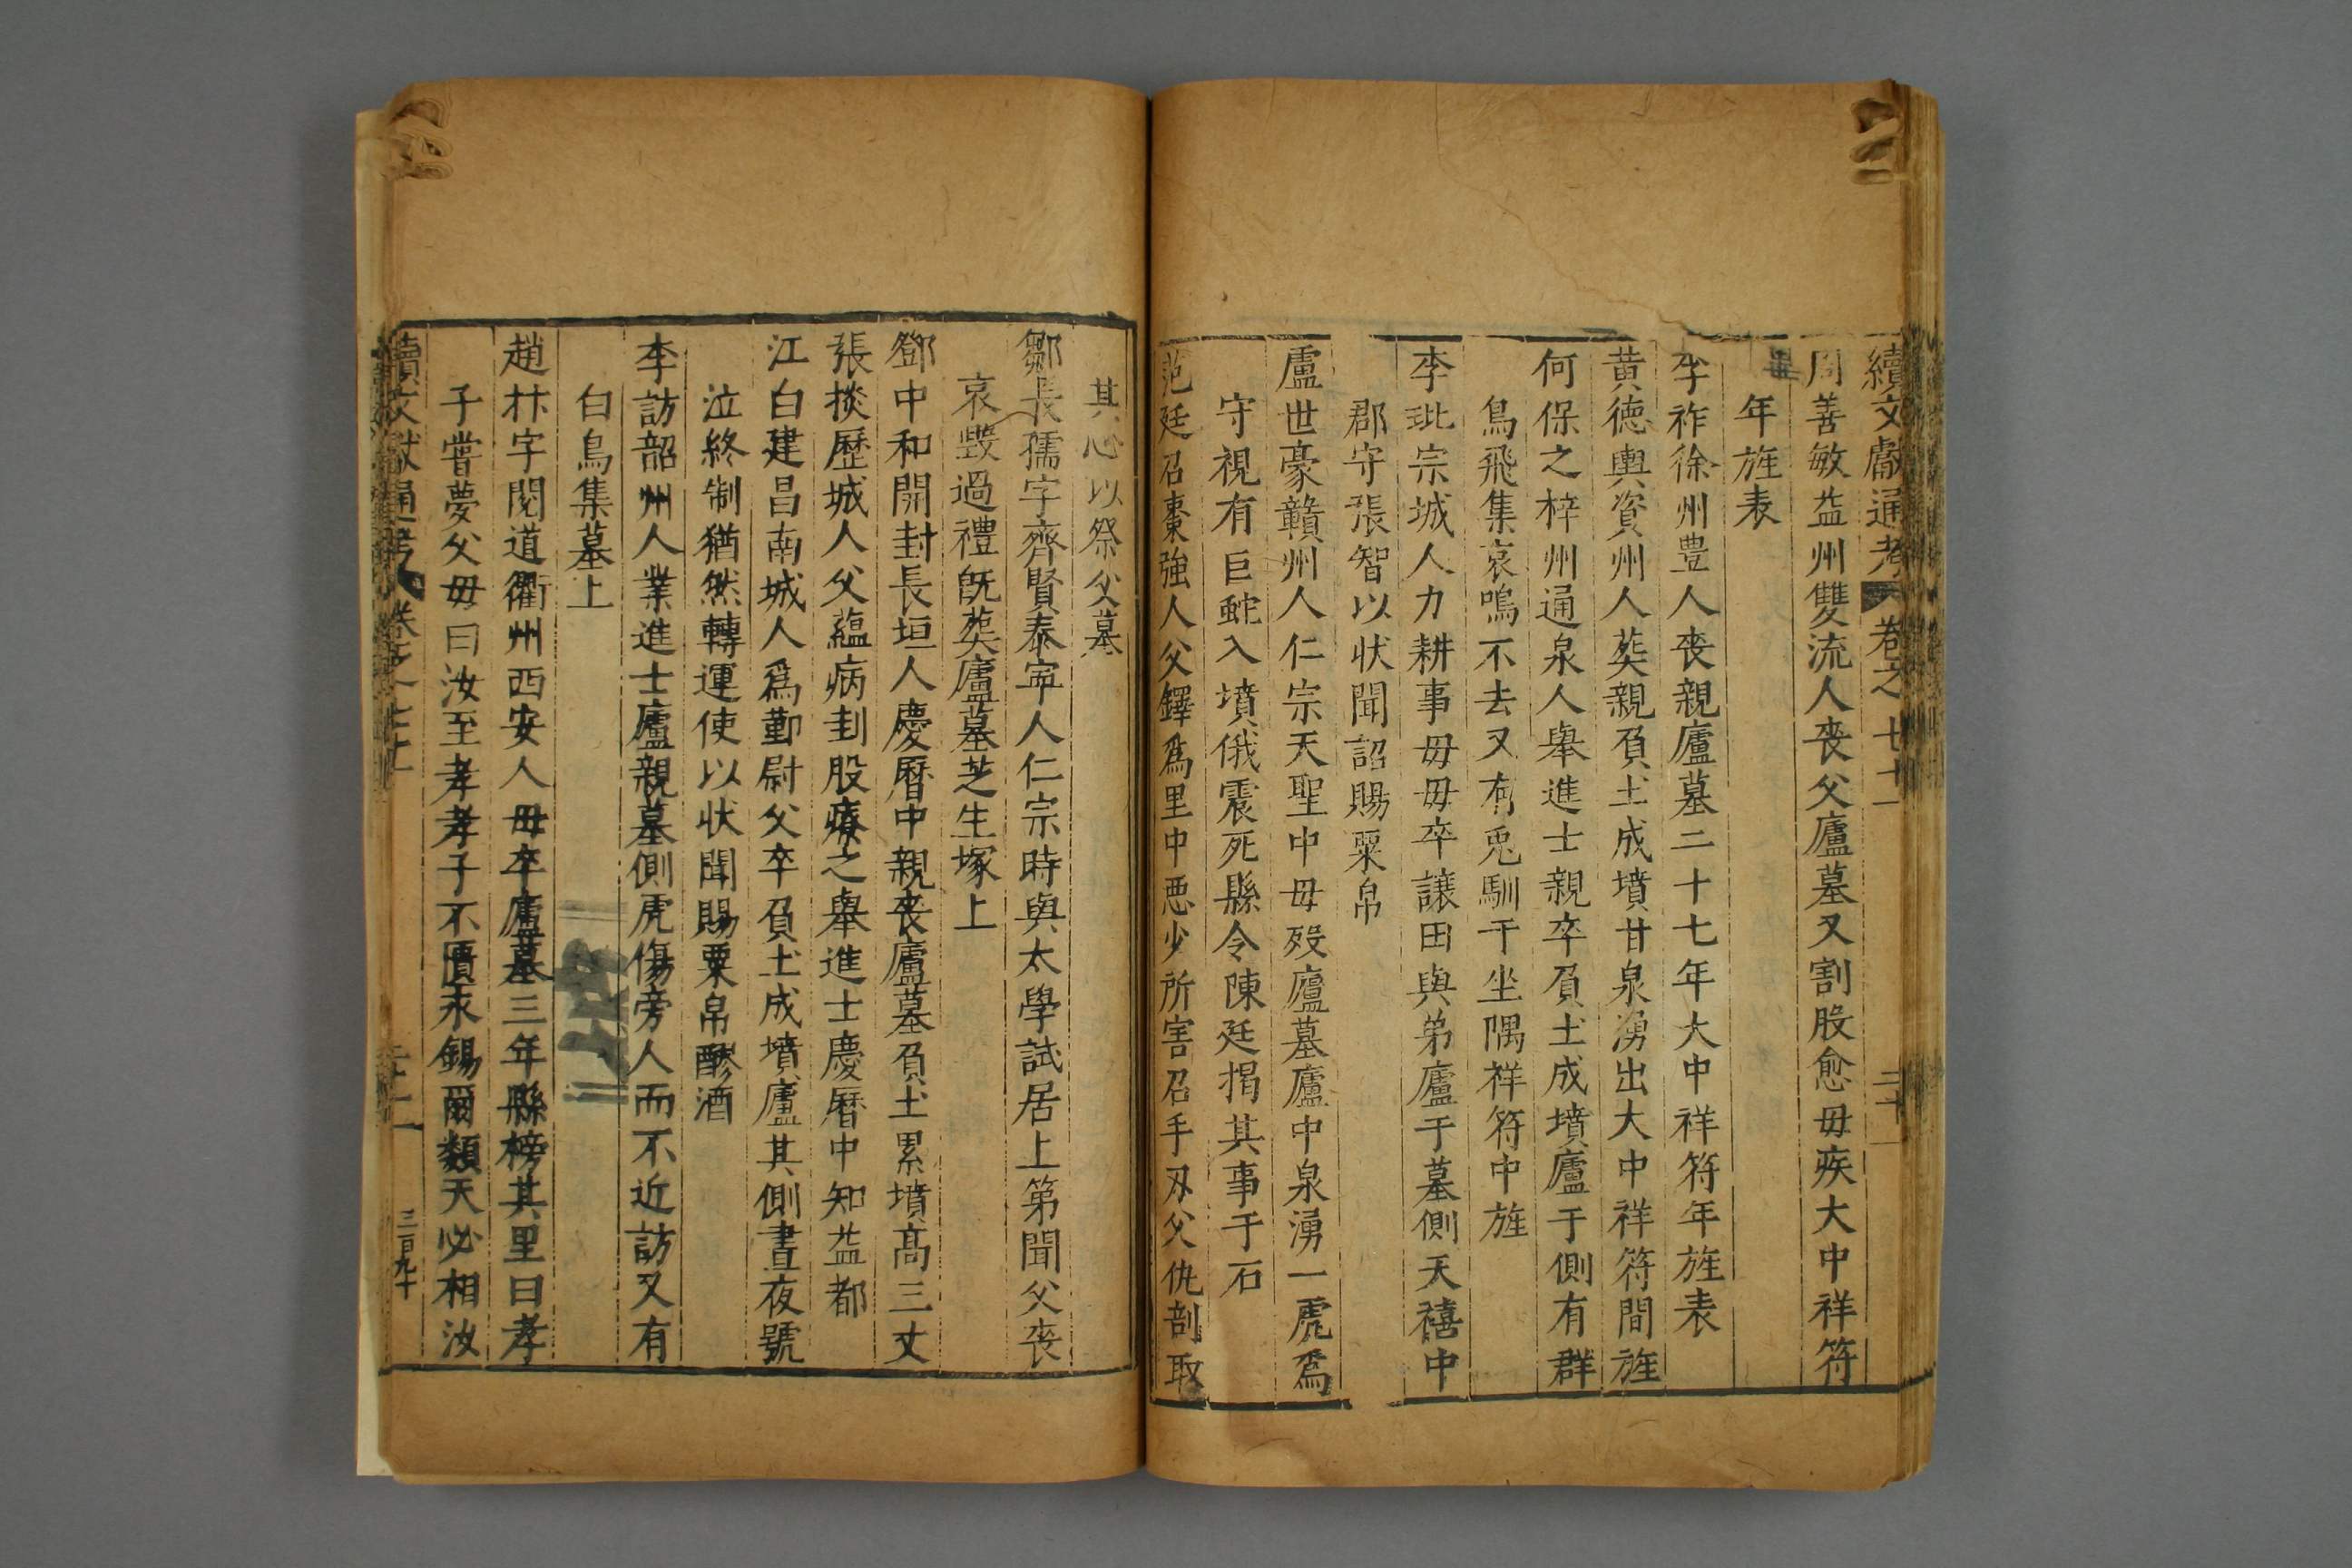 續文獻通考 卷之七十一 二十一
周善敏益州雙流人丧父廬墓又割股愈毋疾大中祥符
年旌表
李祚徐州豊人丧親廬墓二十七年大中祥符年旌表
黄徳輿資州人葬親負土成墳甘泉湧出大中祥符間旌
何保之梓州通泉人舉進士親卒負土成墳廬于側有群
鳥飛集哀鳴不去又有兎馴于坐隅祥符中旌
李玭宗城人力耕事毋毋卒讓田與弟廬于墓側天禧中
郡守張智以状聞詔賜粟帛
盧世豪贛州人仁宗天聖中毋歿廬墓廬中泉湧一虎爲
守視有巨蛇入墳俄震死縣令陳廷揭其事于石
范廷召棗強人父鐸爲里中惡少所害召手刄父仇剖取
其心以祭父墓
鄒長孺字齊賢泰寧人仁宗時與太學試居上第聞父丧
哀毀過禮旣葬廬墓芝生塚上
鄧中和開封長垣人慶曆中親丧廬墓負土累墳髙三丈
張掞歷城人父蘊病刲股療之舉進士慶曆中知益都
江白建昌南城人爲勤尉父卒負土成墳廬其側晝夜號
泣終制猶然轉運使以状聞賜粟帛醪酒
李訪韶州人業進士廬親墓側虎傷旁人而不近訪又有
白鳥集墓上
趙抃字閱道衢州西安人毋卒廬墓三年縣榜其里曰孝
子嘗夢父毋曰汝至孝孝子不匱永錫爾類天必相汝
續文獻通考 卷之七十一 二十一 三百九十